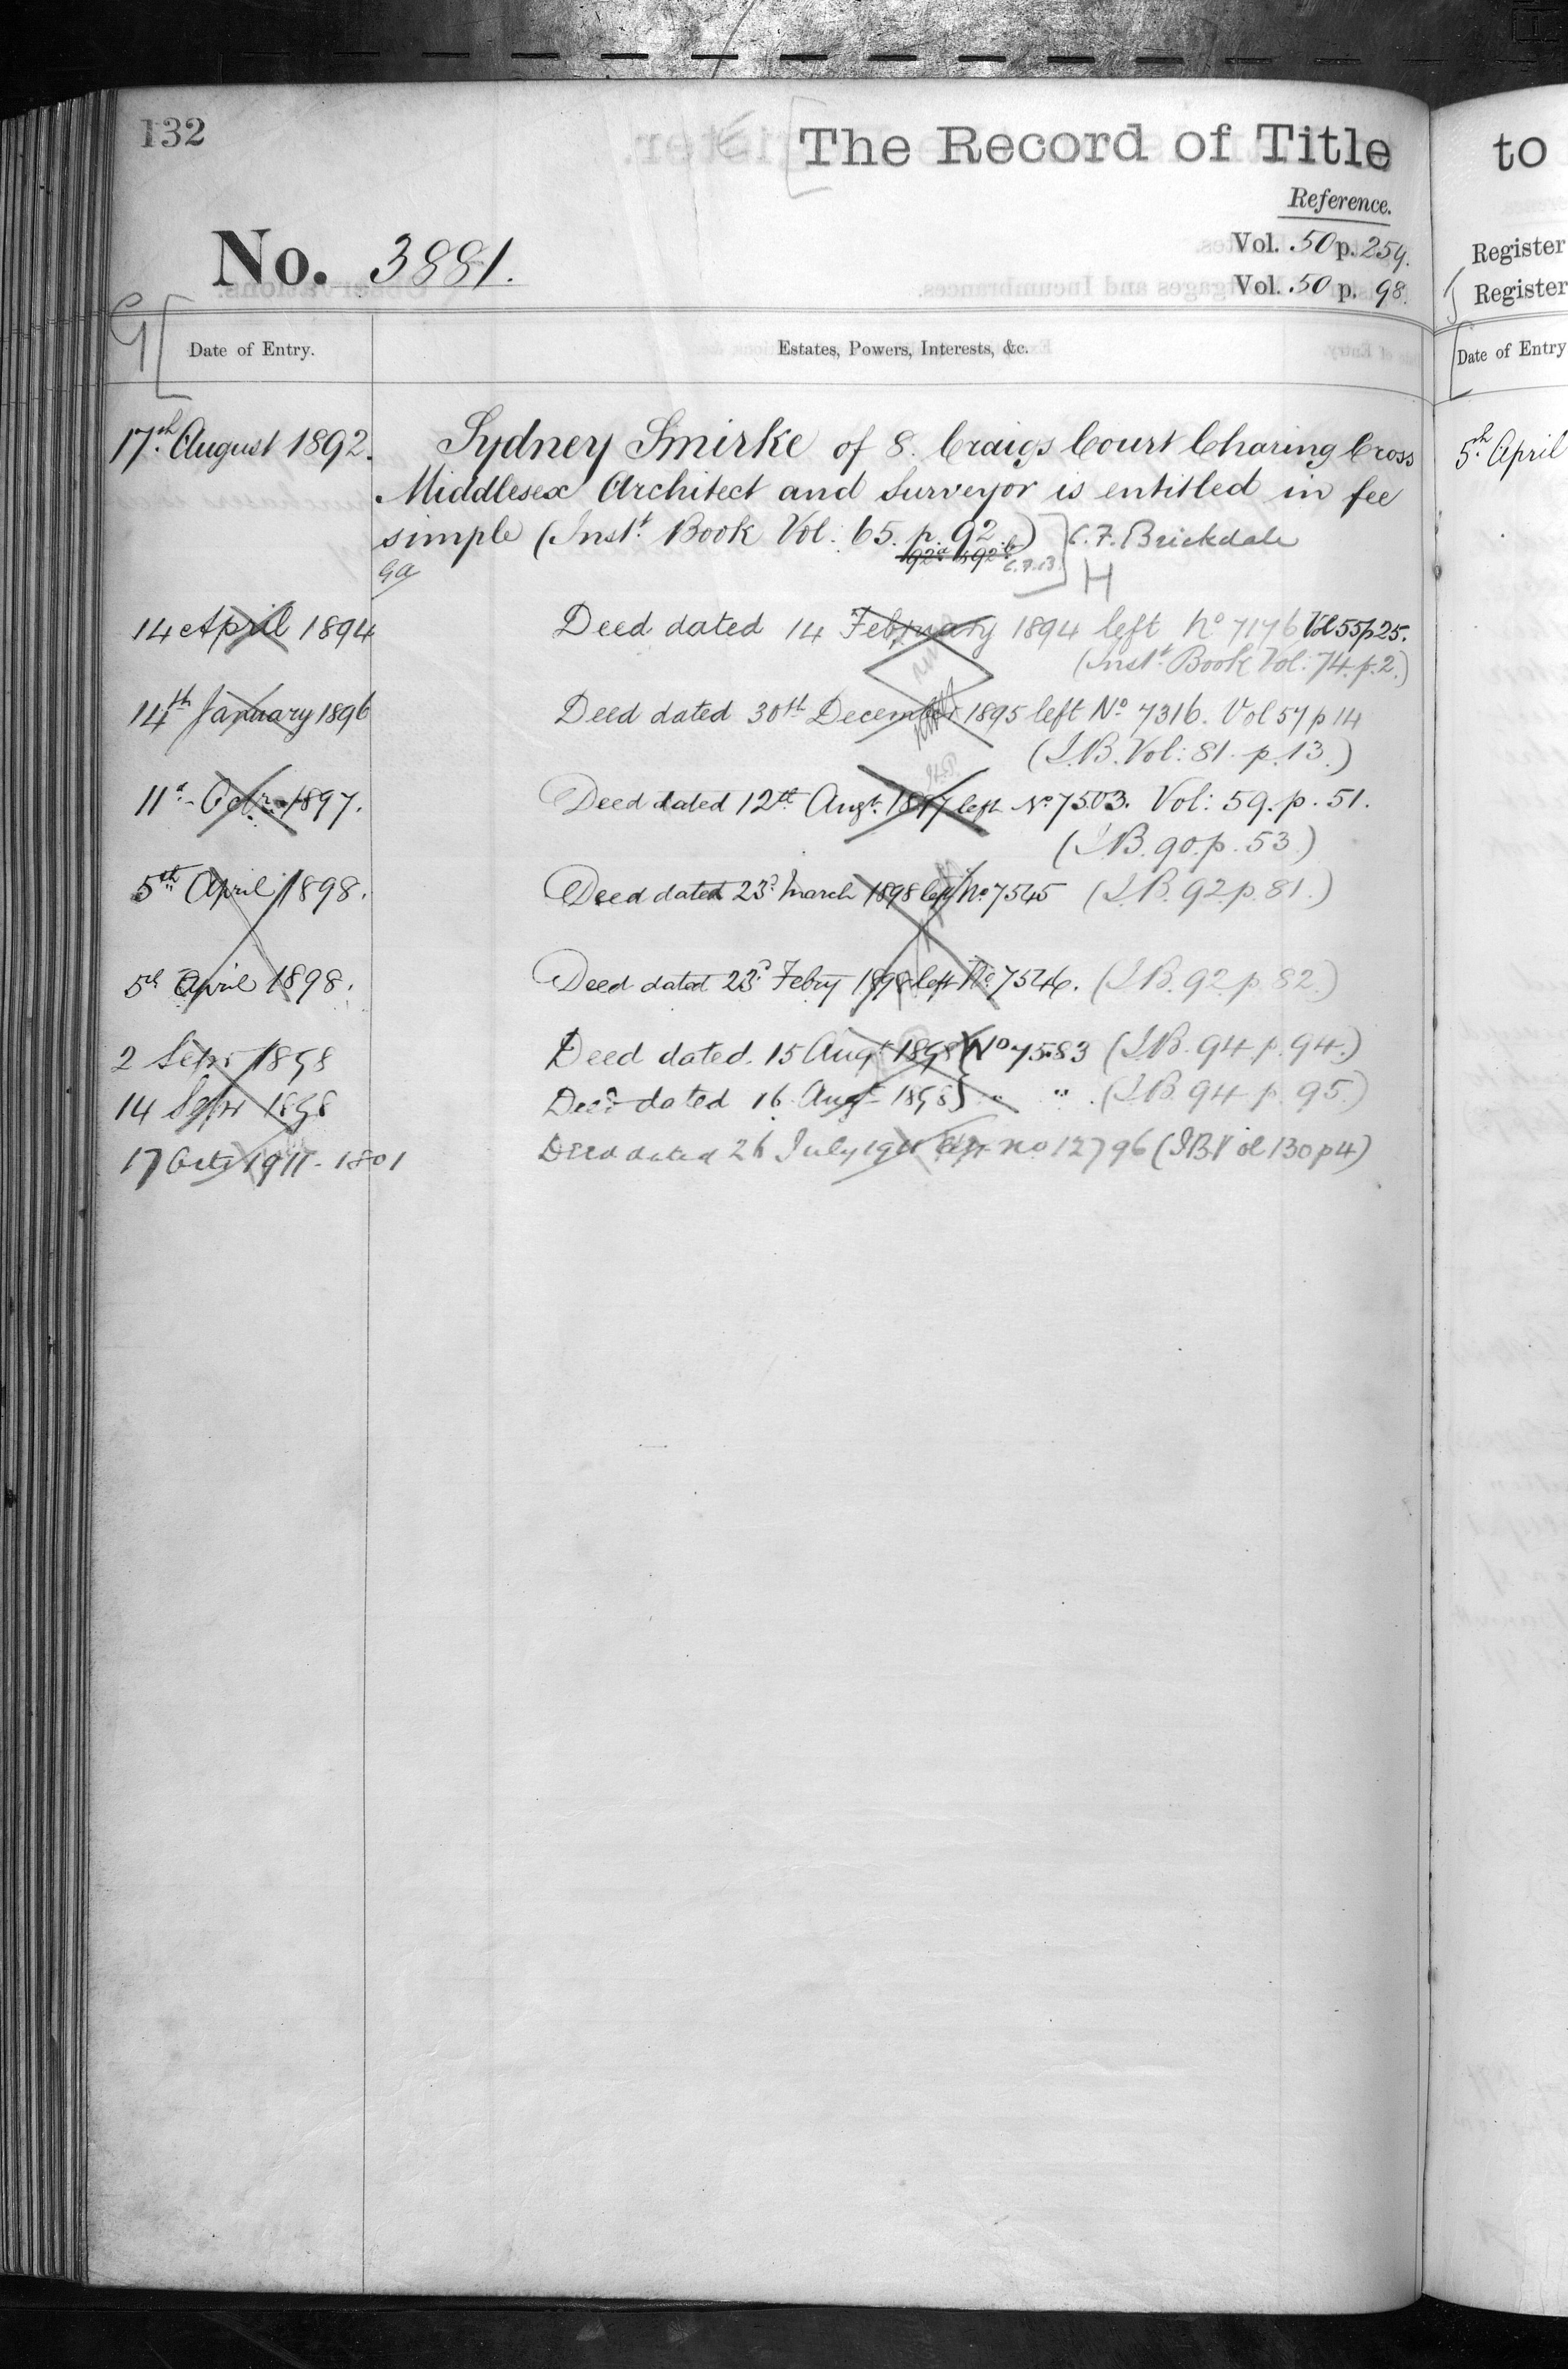 132
The Record of Title
Reference.
No. 3881.
Vol. 50 p. 259.
Vol. 50 p. 98.
Date of Entry.
Estates, Powers, Interests, &c.
17th August 1892.
Sydney Smirke of 8. Craigs Court Charing Cross
Middlesex Architect and Surveyor is entitled in fee
simple (Instt. Book Vol: 65. p. 92.) C. F. Brickdale
92a 92b C.F.B.
H
14 April 1894
Deed dated 14 February 1894 left No 7176 Vol 55 p 25.
(Instt. Book Vol: 74. p. 2.)
14th January 1896
Deed dated 30th December 1895 left No 7316. Vol 57 p 14
(I.B. Vol: 81. p. 13.)
11th Octr. 1897.
Deed dated 12th Augt. 1897 left No 7503. Vol: 59. p. 51.
(I.B. 90. p. 53.)
5th April 1898.
Deed dated 23d. March 1898 left No 7545 (I.B. 92. p. 81.)
5th April 1898.
Deed dated 23d. Febry 1898 left No 7546. (I.B. 92 p. 82.)
2 Sepr 1898
Deed dated. 15 Augt 1898 No 7583 (I.B. 94. p. 94.)
14 Sepr 1898
Deed dated 16 Augt 1898 " " (I.B. 94 p. 95.)
17 Octr 1911 - 1801
Deed dated 26 July 1911 App. no 12796 (IB Vol 130 p 4)
to
Register
Register
Date of Entry
5th. April